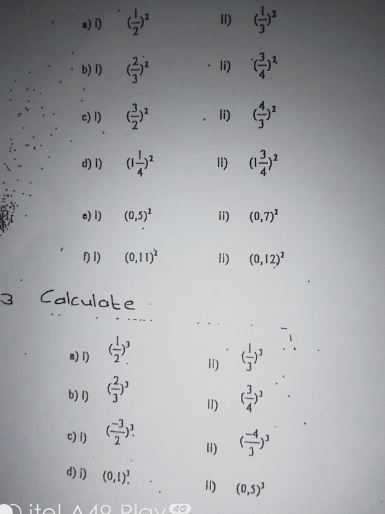 a) i) (1/2)² II) (1/3)²
b) I) (2/3)² Ii) (3/4)²
c) I) (3/2)² Ii) (4/3)²
d) I) (1 1/4)² II) (1 3/4)²
e) i) (0,5)² ii) (0,7)²
f) I) (0,11)² Ii) (0,12)²
3 Calculate
a) i) (1/2)³ II) (1/3)³
b) I) (2/3)³ II) (3/4)³
c) i) (-3/2)³ II) (-4/3)³
d) i) (0,1)³ II) (0,5)³
itel A49 Play 4G